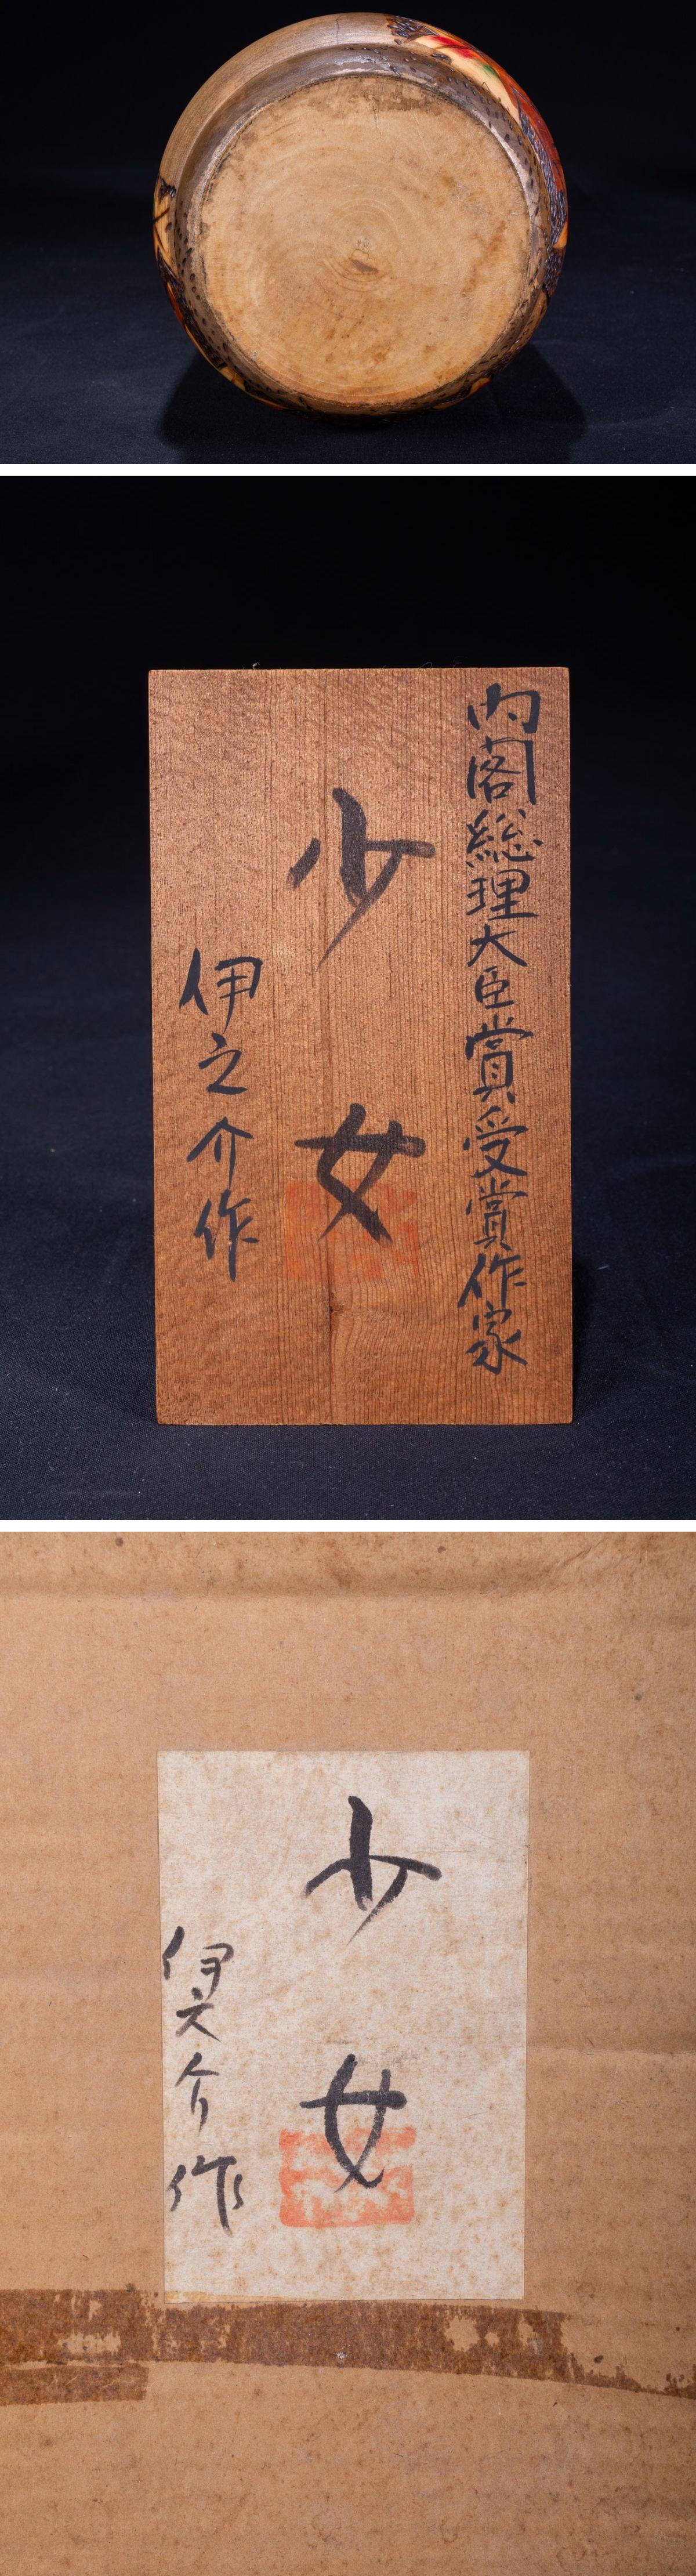 内閣総理大臣賞受賞作家
少女
伊之介作
少女
伊之介作